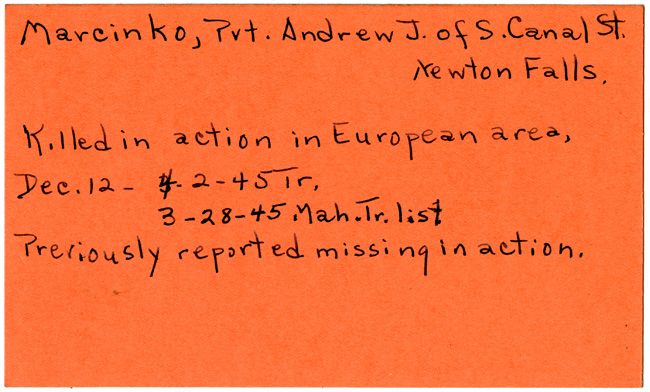 Marcinko, Pvt. Andrew J. of S. Canal St.
Newton Falls.
Killed in action in European area,
Dec. 12 - 4-2-45 Tr.
3-28-45 Mah. Tr. list
Previously reported missing in action.